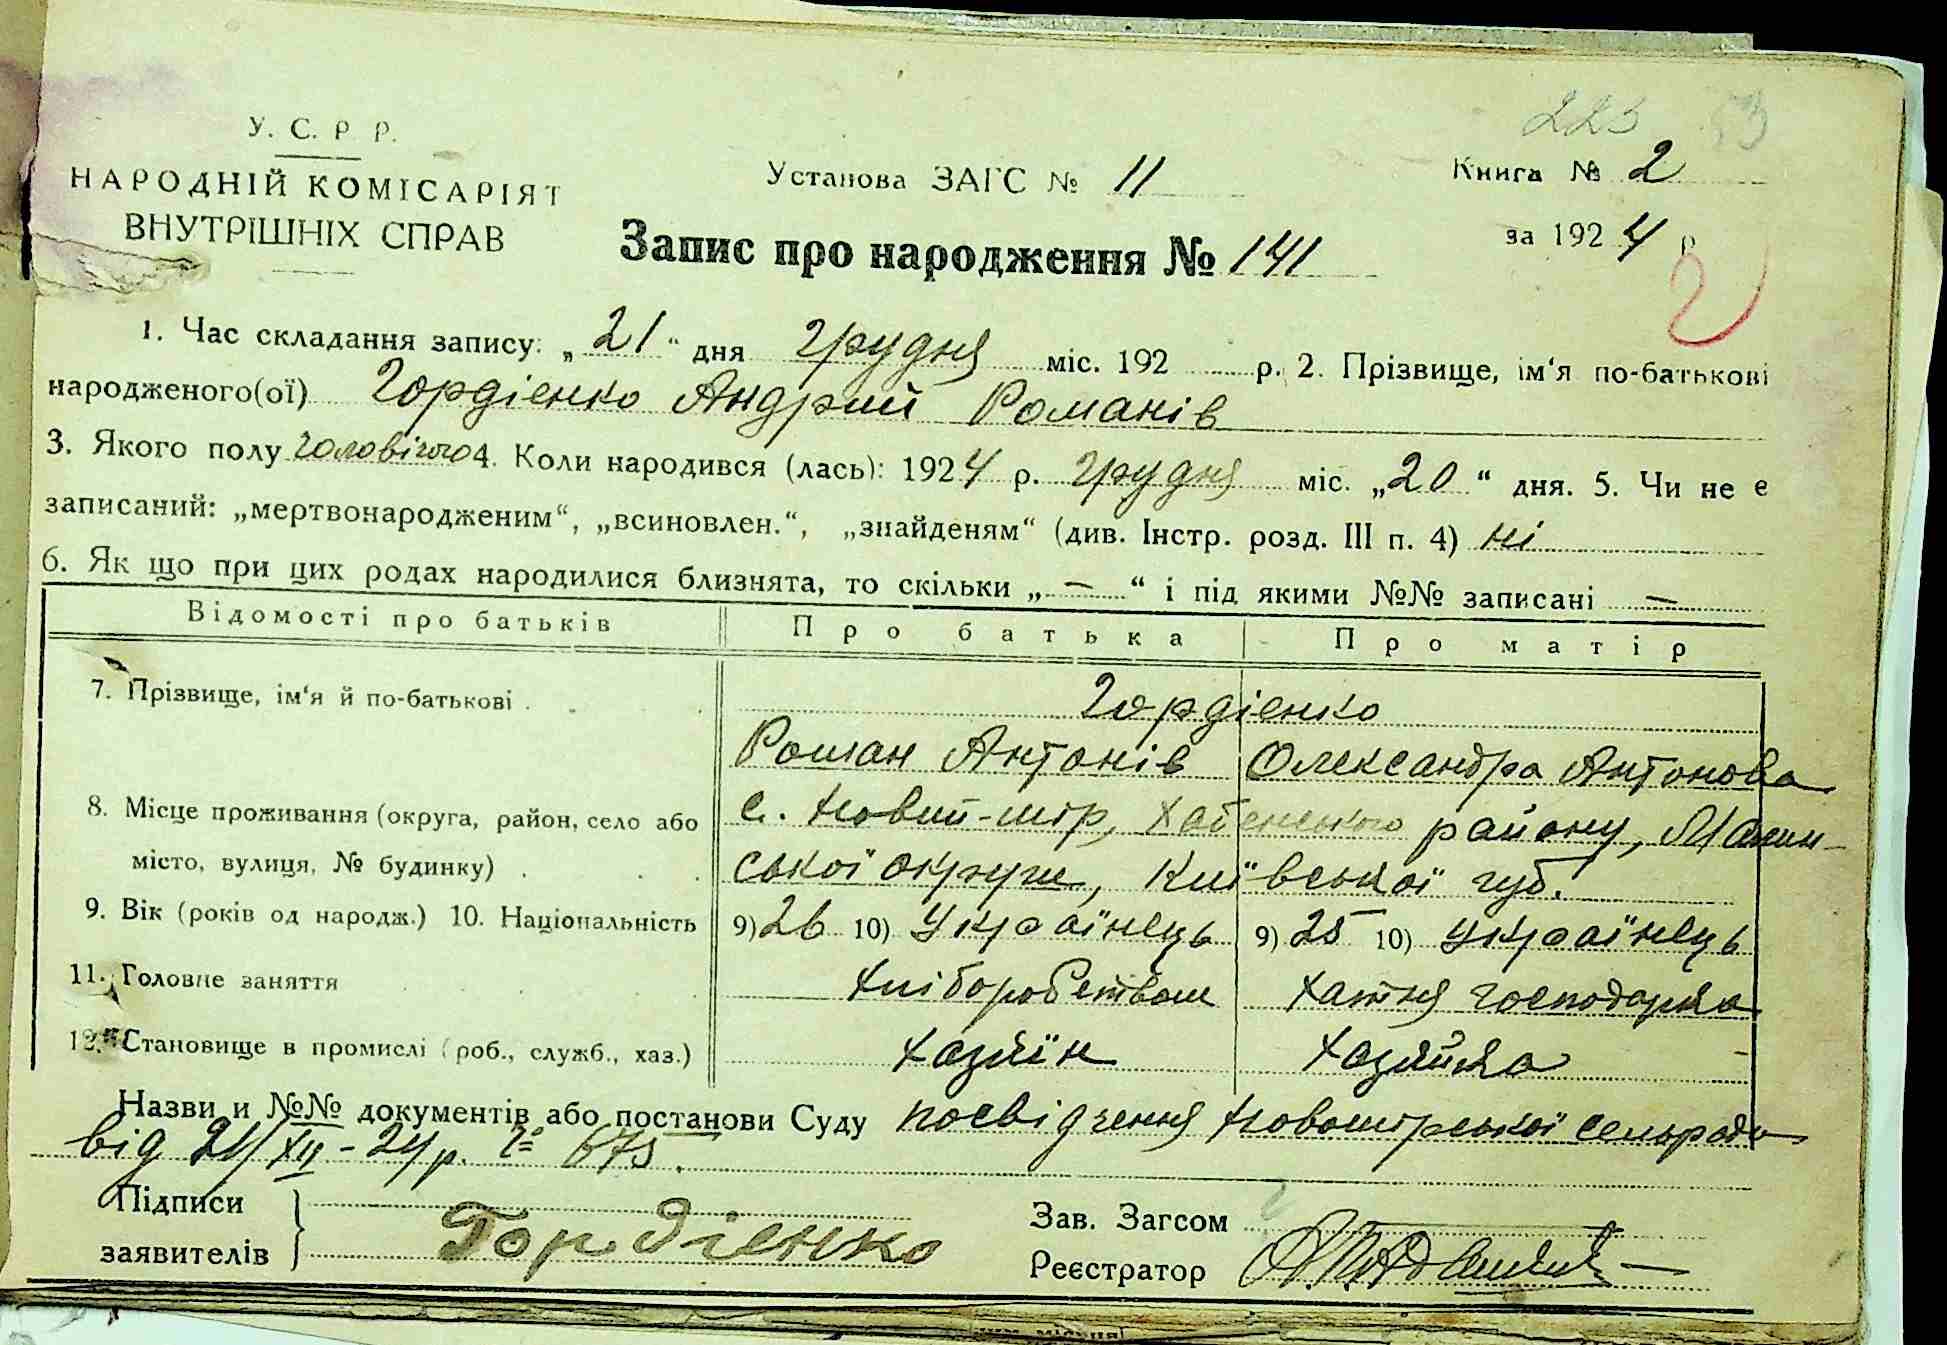 223 53
У. С. Р. Р.
НАРОДНІЙ КОМІСАРІЯТ
ВНУТРІШНІХ СПРАВ
Установа ЗАГС № 11
Книга № 2
за 1924 р
2
Запис про народження № 141
1. Час складання запису: „21“ дня грудня міс. 192 р. 2. Прізвище, ім‘я по-батькові
народженого(ої) Гордієнко Андрий Романів
3. Якого полу чоловічого 4. Коли народився (лась): 1924 р. грудня міс. „20“ дня. 5. Чи не є
записаний: „мертвонародженим“, „всиновлен.“, „знайденям“ (див. Інстр. розд. III п. 4) ні
6. Як що при цих родах народилися близнята, то скільки „—“ і під якими №№ записані —
Відомості про батьків Про батька Про матір
7. Прізвище, ім‘я й по-батькові . Гордієнко
Роман Антонів Олександра Антонова
8. Місце проживання (округа, район, село або с. Новий-мір, Хабенського району, Малин-
місто, вулиця, № будинку) . ської округи, Київської губ.
9. Вік (років од народж.) 10. Національність 9) 26 10) Українець 9) 25 10) Українець
11. Головне заняття хліборобством хатня господарка
12. Становище в промислі (роб., служб., хаз.) хазяїн хазяйка
Назви и №№ документів або постанови Суду посвідчення Новомірської сельради
від 21/XII-24 р. № 675.
Підписи
заявителів } Гордіенко
Зав. Загсом
Реєстратор